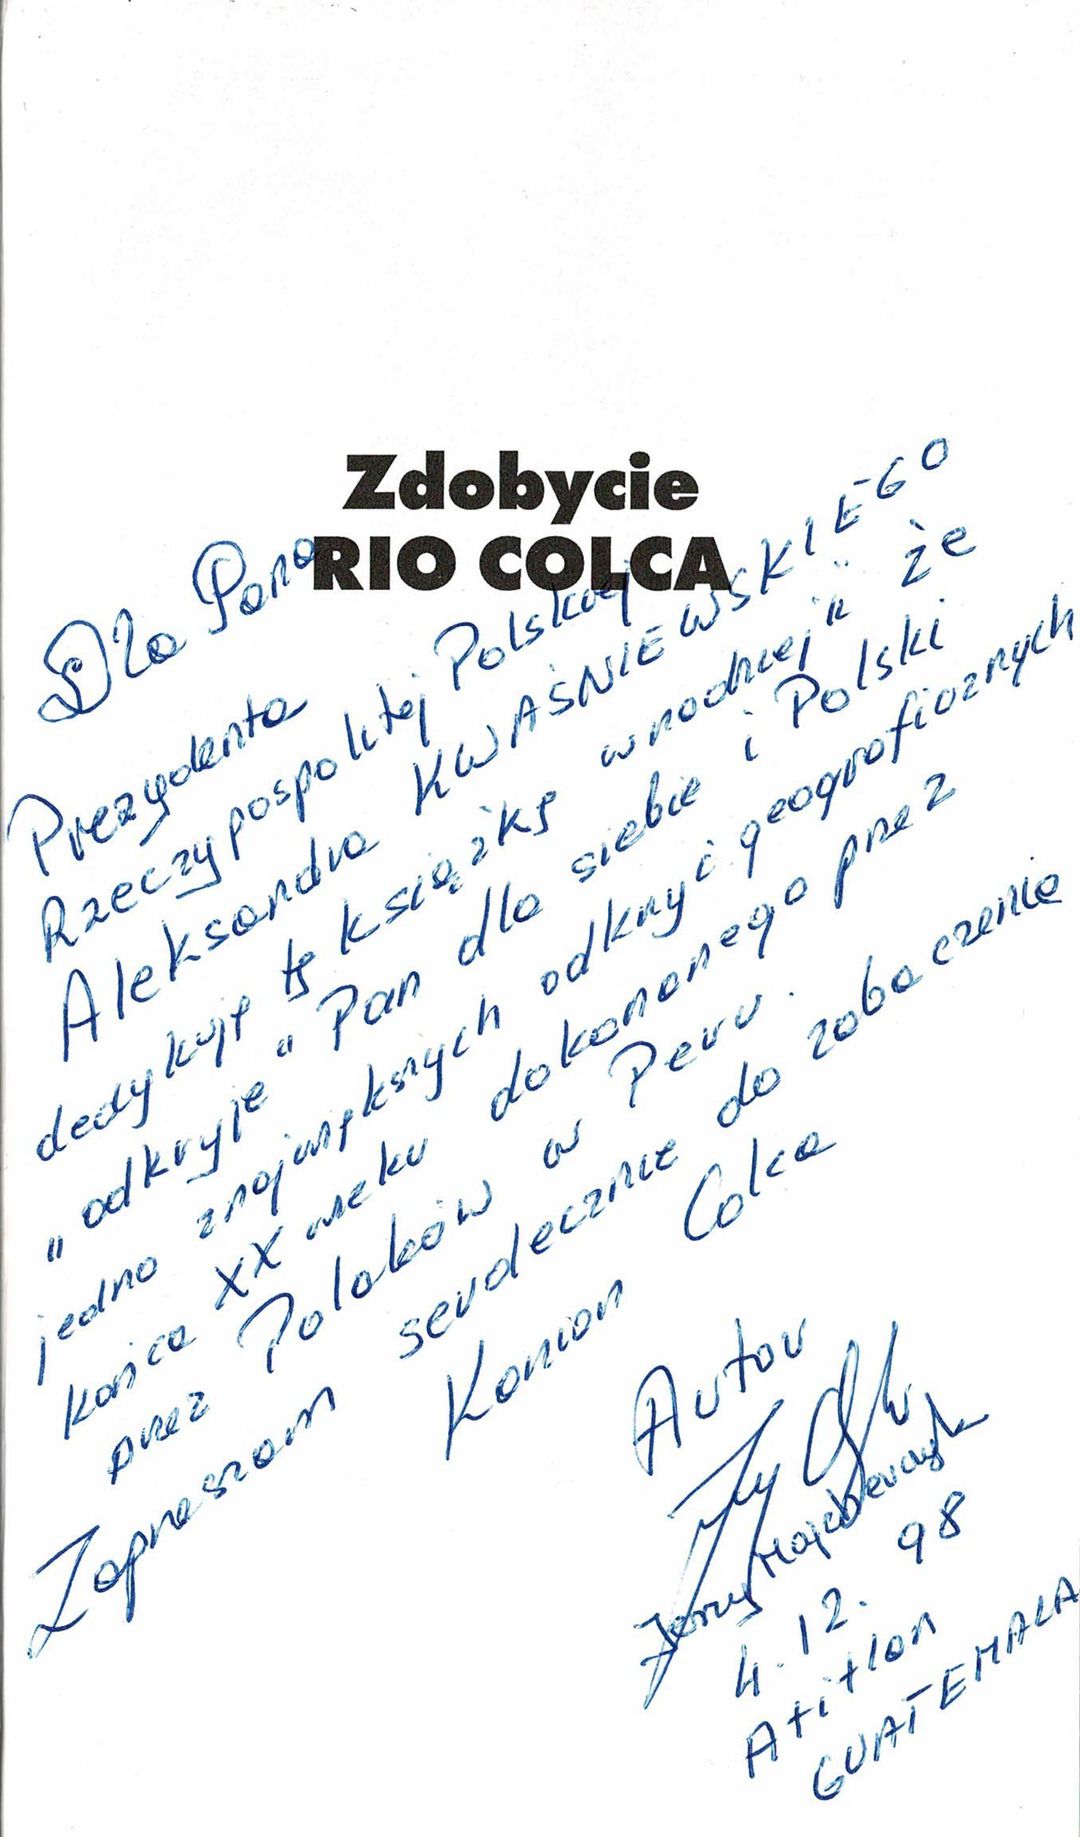 Zdobycie
RIO COLCA
Dla Pana
Prezydenta
Rzeczypospolitej Polskiej
Aleksandra KWAŚNIEWSKIEGO
dedykuję tę książkę wnadzieji" że
"odkryje" Pan dla siebie i Polski
jedno znajwiększych odkryć geograficznych
końca XX wieku dokonanego przez
przez Polaków w Peru.
Zapraszam serdecznie do zobaczenia
Kanion Colca
Autor
Jerzy Majcherczyk
4.12.98
Atitlan
GUATEMALA